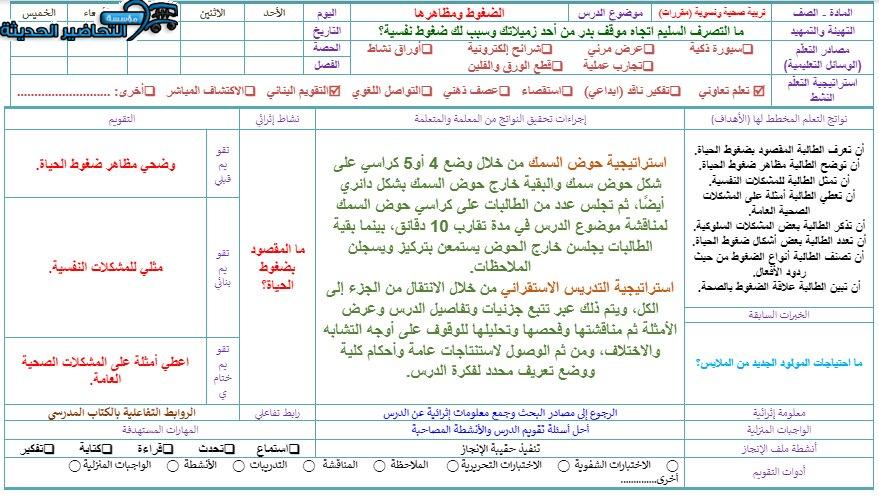 المادة - الصف
تربية صحية ونسوية (مقررات)
موضوع الدرس
الضغوط ومظاهرها
اليوم
الأحد
الاثنين
الخميس
مؤسسة
التحاضير الحديثة
التهيئة والتمهيد
ما التصرف السليم اتجاه موقف بدر من أحد زميلاتك وسبب لك ضغوط نفسية؟
التاريخ
مصادر التعلّم
(الوسائل التعليمية)
❑سبورة ذكية ❑عرض مرئي ❑شرائح إلكترونية ❑أوراق نشاط
❑تجارب عملية ❑قطع الورق والفلين
الحصة
الفصل
استراتيجية التعلّم
النشط
☑ تعلم تعاوني ❑تفكير ناقد (إبداعي) ❑استقصاء ❑عصف ذهني ❑التواصل اللغوي ☑التقويم البنائي ❑الاكتشاف المباشر ❑أخرى: ..........................
نواتج التعلم المخطط لها (الأهداف)
إجراءات تحقيق النواتج من المعلمة والمتعلمة
نشاط إثرائي
التقويم
أن تعرف الطالبة المقصود بضغوط الحياة.
أن توضح الطالبة مظاهر ضغوط الحياة.
أن تمثل الطالبة للمشكلات النفسية.
أن تعطي الطالبة أمثلة على المشكلات
الصحية العامة.
أن تذكر الطالبة بعض المشكلات السلوكية.
أن تعدد الطالبة بعض أشكال ضغوط الحياة.
أن تصنف الطالبة أنواع الضغوط من حيث
ردود الأفعال.
أن تبين الطالبة علاقة الضغوط بالصحة.
الخبرات السابقة
ما احتياجات المولود الجديد من الملابس؟
استراتيجية حوض السمك من خلال وضع 4 أو5 كراسي على
شكل حوض سمك والبقية خارج حوض السمك بشكل دائري
أيضًا، ثم تجلس عدد من الطالبات على كراسي حوض السمك
لمناقشة موضوع الدرس في مدة تقارب 10 دقائق، بينما بقية
الطالبات يجلسن خارج الحوض يستمعن بتركيز ويسجلن
الملاحظات.
استراتيجية التدريس الاستقرائي من خلال الانتقال من الجزء إلى
الكل، ويتم ذلك عبر تتبع جزئيات وتفاصيل الدرس وعرض
الأمثلة ثم مناقشتها وفحصها وتحليلها للوقوف على أوجه التشابه
والاختلاف، ومن ثم الوصول لاستنتاجات عامة وأحكام كلية
ووضع تعريف محدد لفكرة الدرس.
ما المقصود
بضغوط
الحياة؟
تقو
يم
قبلي
وضحي مظاهر ضغوط الحياة.
تقو
يم
بنائي
مثلي للمشكلات النفسية.
تقو
يم
ختام
ي
اعطي أمثلة على المشكلات الصحية
العامة.
معلومة إثرائية
الرجوع إلى مصادر البحث وجمع معلومات إثرائية عن الدرس
رابط تفاعلي
الروابط التفاعلية بالكتاب المدرسي
الواجبات المنزلية
أحل أسئلة تقويم الدرس والأنشطة المصاحبة
المهارات المستهدفة
أنشطة ملف الإنجاز
تنفيذ حقيبة الإنجاز
❑استماع ❑تحدث ❑قراءة ❑كتابة ❑تفكير
أدوات التقويم
○ الاختبارات الشفوية ○ الاختبارات التحريرية ○ الملاحظة ○ المناقشة ○ التدريبات ○ الأنشطة ○ الواجبات المنزلية ○
أخرى..............